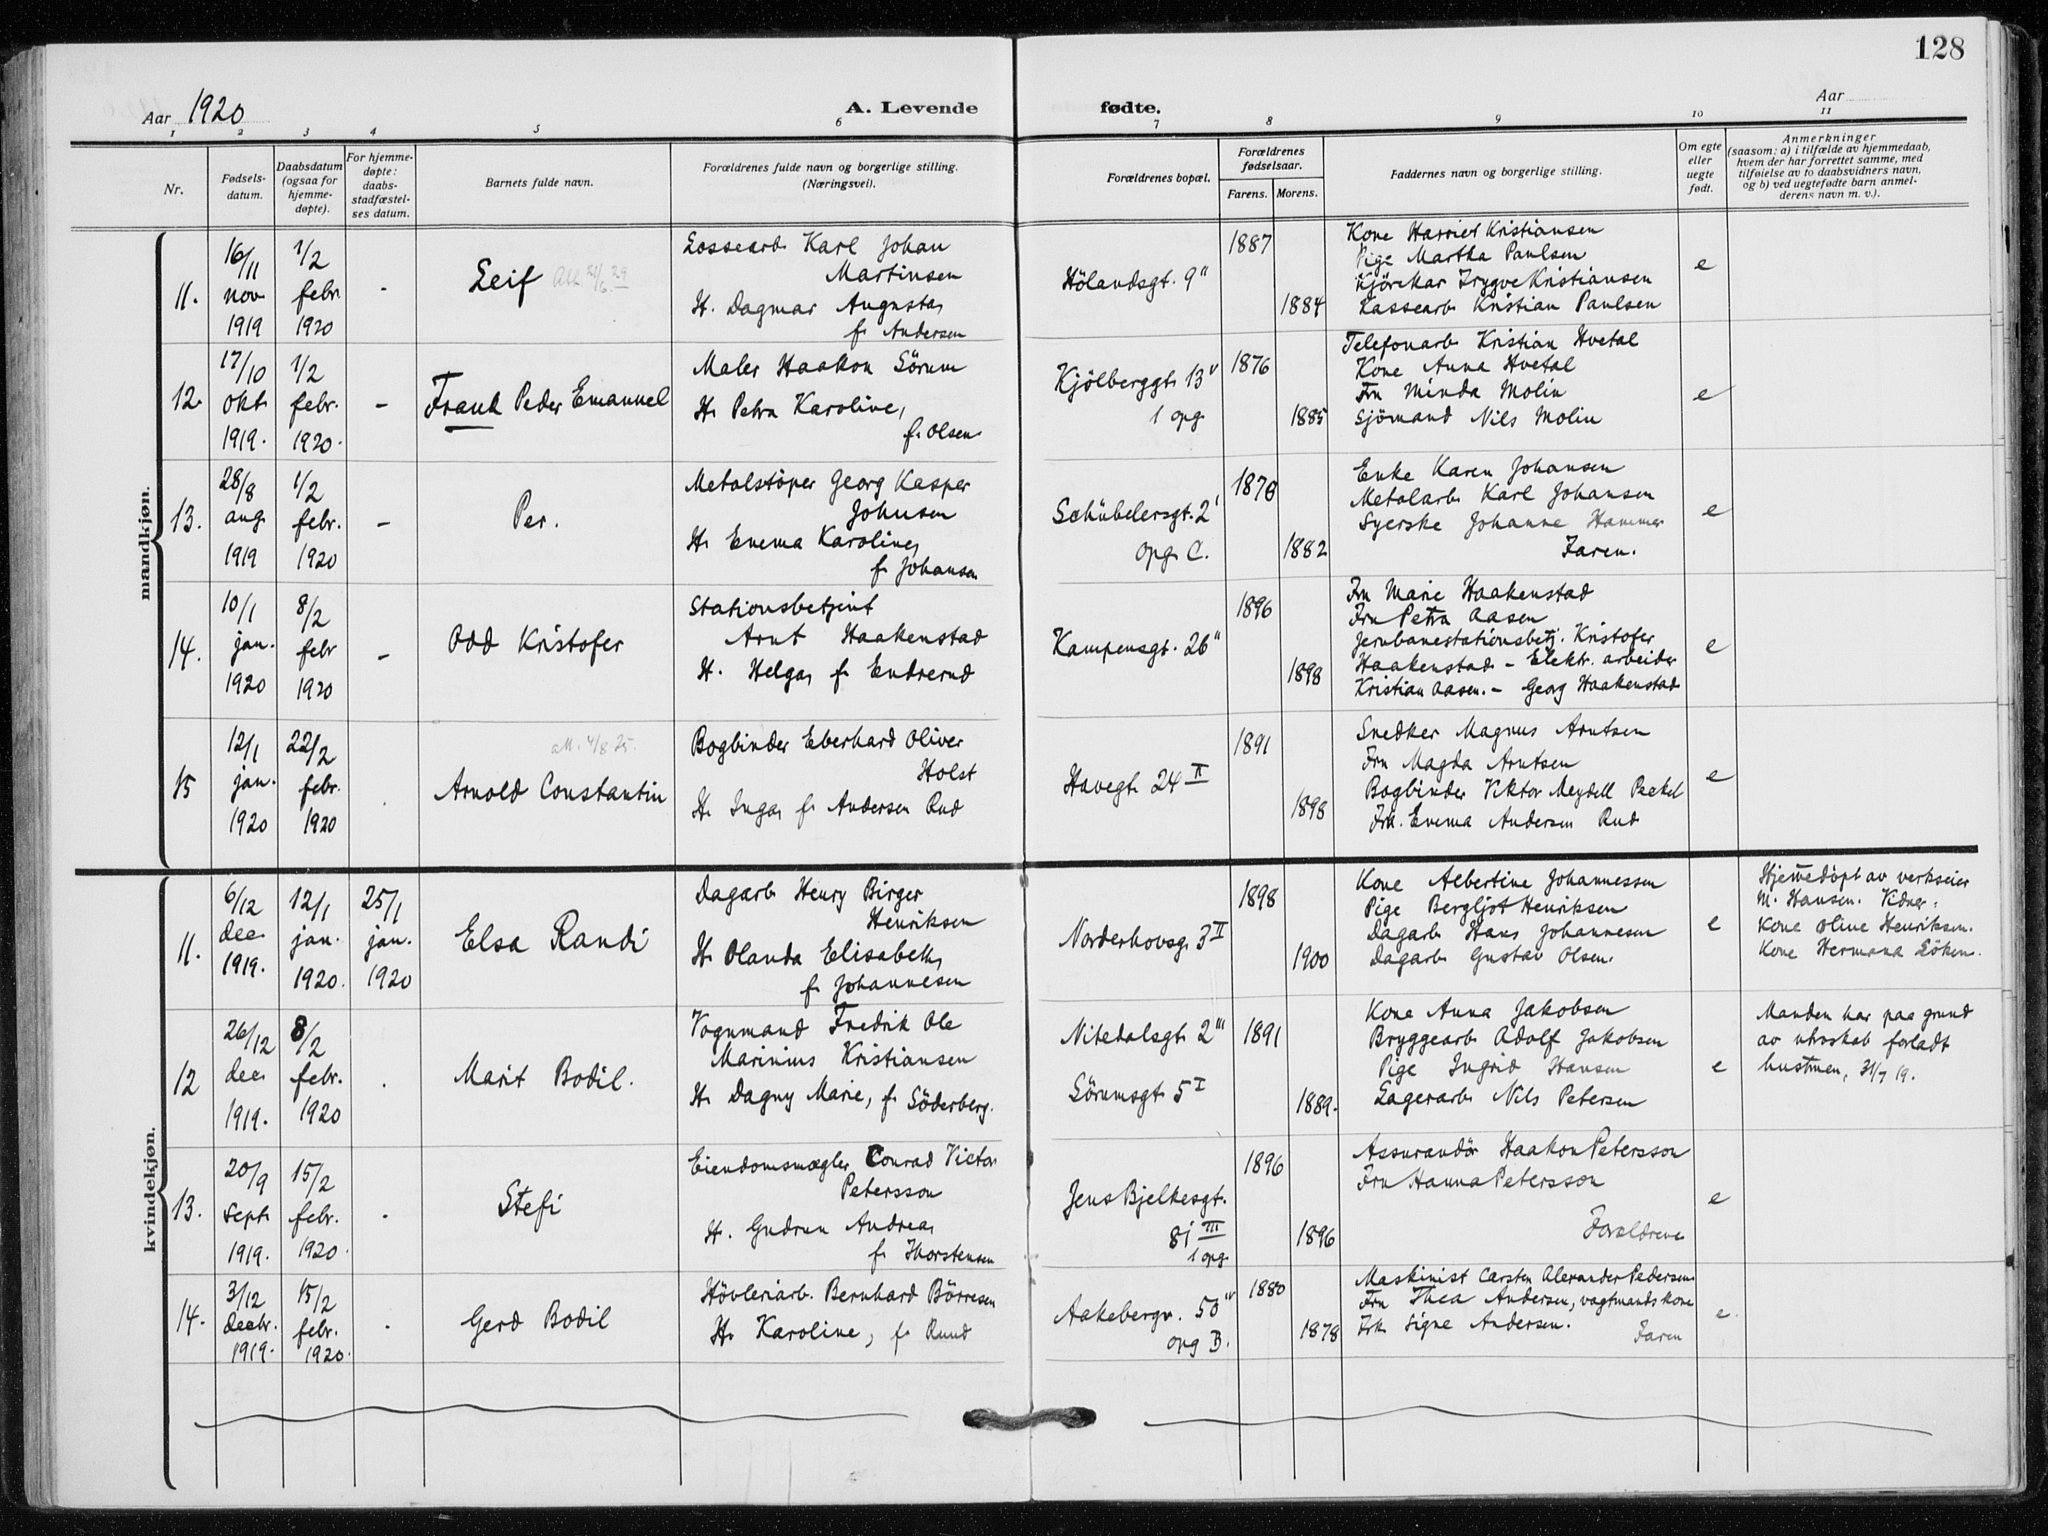 128
Aar 1920
A. Levende
fødte.
Aar
1
2
3
4
5
6
7
8
9
10
11
Nr.
Fødsels-
datum.
Daabsdatum
(ogsaa for
hjemme-
døpte).
For hjemme-
døpte:
daabs-
stadfæstel-
ses datum.
Barnets fulde navn.
Forældrenes fulde navn og borgerlige stilling.
(Næringsvei).
Forældrenes bopæl.
Forældrenes
fødselsaar.
Farens.
Morens.
Faddernes navn og borgerlige stilling.
Om egte
eller
uegte
født.
Anmerkninger
(saasom: a) i tilfælde av hjemmedaab,
hvem der har forrettet samme, med
tilføielse av to daabsvidners navn,
og b) ved uegtefødte barn anmel-
derens navn m. v.).
mandkjøn.
11.
16/11
nov
1919
1/2
febr
1920
-
Leif
Lossearb. Karl Johan
Martinsen
H. Dagmar Augusta,
f. Andersen
Hölandsgt. 9"
1887
1884
Kone Harriet Kristiansen
Pige Martha Paulsen
Kjörekar Trygve Kristiansen
Lassearb. Kristian Paulsen
e
12.
17/10
okt.
1919.
1/2
febr.
1920.
-
Frank Peder Emanuel
Maler Haakon Sörum
H. Petra Karoline,
f. Olsen
Kjölberggt. 13"
1 opg
1876
1885
Telefonarb. Kristian Hvetal
Kone Anna Hvetal
Fru Minda Molin
Sjömand Nils Molin
e
13.
28/8
aug.
1919
1/2
febr.
1920
-
Per.
Metalstöper Georg Kasper
Johnsen
H. Emma Karoline,
f. Johansen
Schübelersgt. 2'
opg. C.
1876
1882
Enke Karen Johansen
Metalarb. Karl Johansen
Syerske Johanne Hammer
Faren.
e
14.
10/1
jan.
1920
8/2
febr
1920
-
Odd Kristofer
Stationsbetjent
Arnt Haakenstad
H. Helga, f. Endrerud
Kampensgt. 26"
1896
1898
Fru Marie Haakenstad
Fru Petra Aasen
Jernbanestationsbetj. Kristofer
Haakenstad - Elektr. arbeider
Kristian Aasen. - Georg Haakenstad
e
15
12/1
jan.
1920
22/2
febr.
1920
att. 4/8 25.
Arnold Constantin
Bogbinder Eberhard Oliver
Holst
H. Inga, f. Andersen Rud
Havegt. 24 II
1891
1898
Snedker Magnus Arntsen
Fru Magda Arntsen
Bogbinder Viktor Meydell
Frk. Emma Andersen Rud
e
kvindekjøn.
11.
6/12
dec.
1919.
12/1
jan.
1920.
25/1
jan.
1920
Elsa Randi
Dagarb. Henry Birger
Henriksen
H. Olanda Elisabeth,
f. Johannesen
Norderhovsg. 3 II
1898
1900
Kone Albertine Johannessen
Pige Bergljot Henriksen
Dagarb. Hans Johannesen
Dagarb. Gustav Olsen.
e
Hjemmedöpt av verkseier
M. Hansen. Vidner:
Kone Oline Henriksen.
Kone Hermana Löken.
12
26/12
dec.
1919.
8/2
febr.
1920
Marit Bodil.
Vognmand Fredrik Ole
Marinius Kristiansen
H. Dagny Marie, f. Söderberg.
Nitedalsgt. 2'''
Sörumsgt. 5 I
1891
1889.
Kone Anna Jakobsen
Bryggearb. Adolf Jakobsen
Pige Ingrid Hansen
Lagerarb. Nils Petersen
e
Manden har paa grund
av utroskab forladt
hustruen, 31/7 19.
13.
20/9
sept.
1919.
15/2
febr.
1920.
Stefi
Eiendomsmægler Conrad Victor
Petersson
H. Gudrun Andrea,
f. Thorstensen
Jens Bjelkesgt.
8i III
1 opg.
1896
1896
Assurandör Haakon Petersson
Fru Hanna Petersson
Forældrene
e
14.
3/12
decbr.
1919.
15/2
febr.
1920.
Gerd Bodil
Hövleriarb. Bernhard Börresen
H. Karoline, f. Ruud
Aakebergv. 50"
opg B.
1880
1878
Maskinist Carsten Alexander Pedersen
Fru Thea Andersen, vagtmandskone
Frk. Signe Andersen.
Faren
e